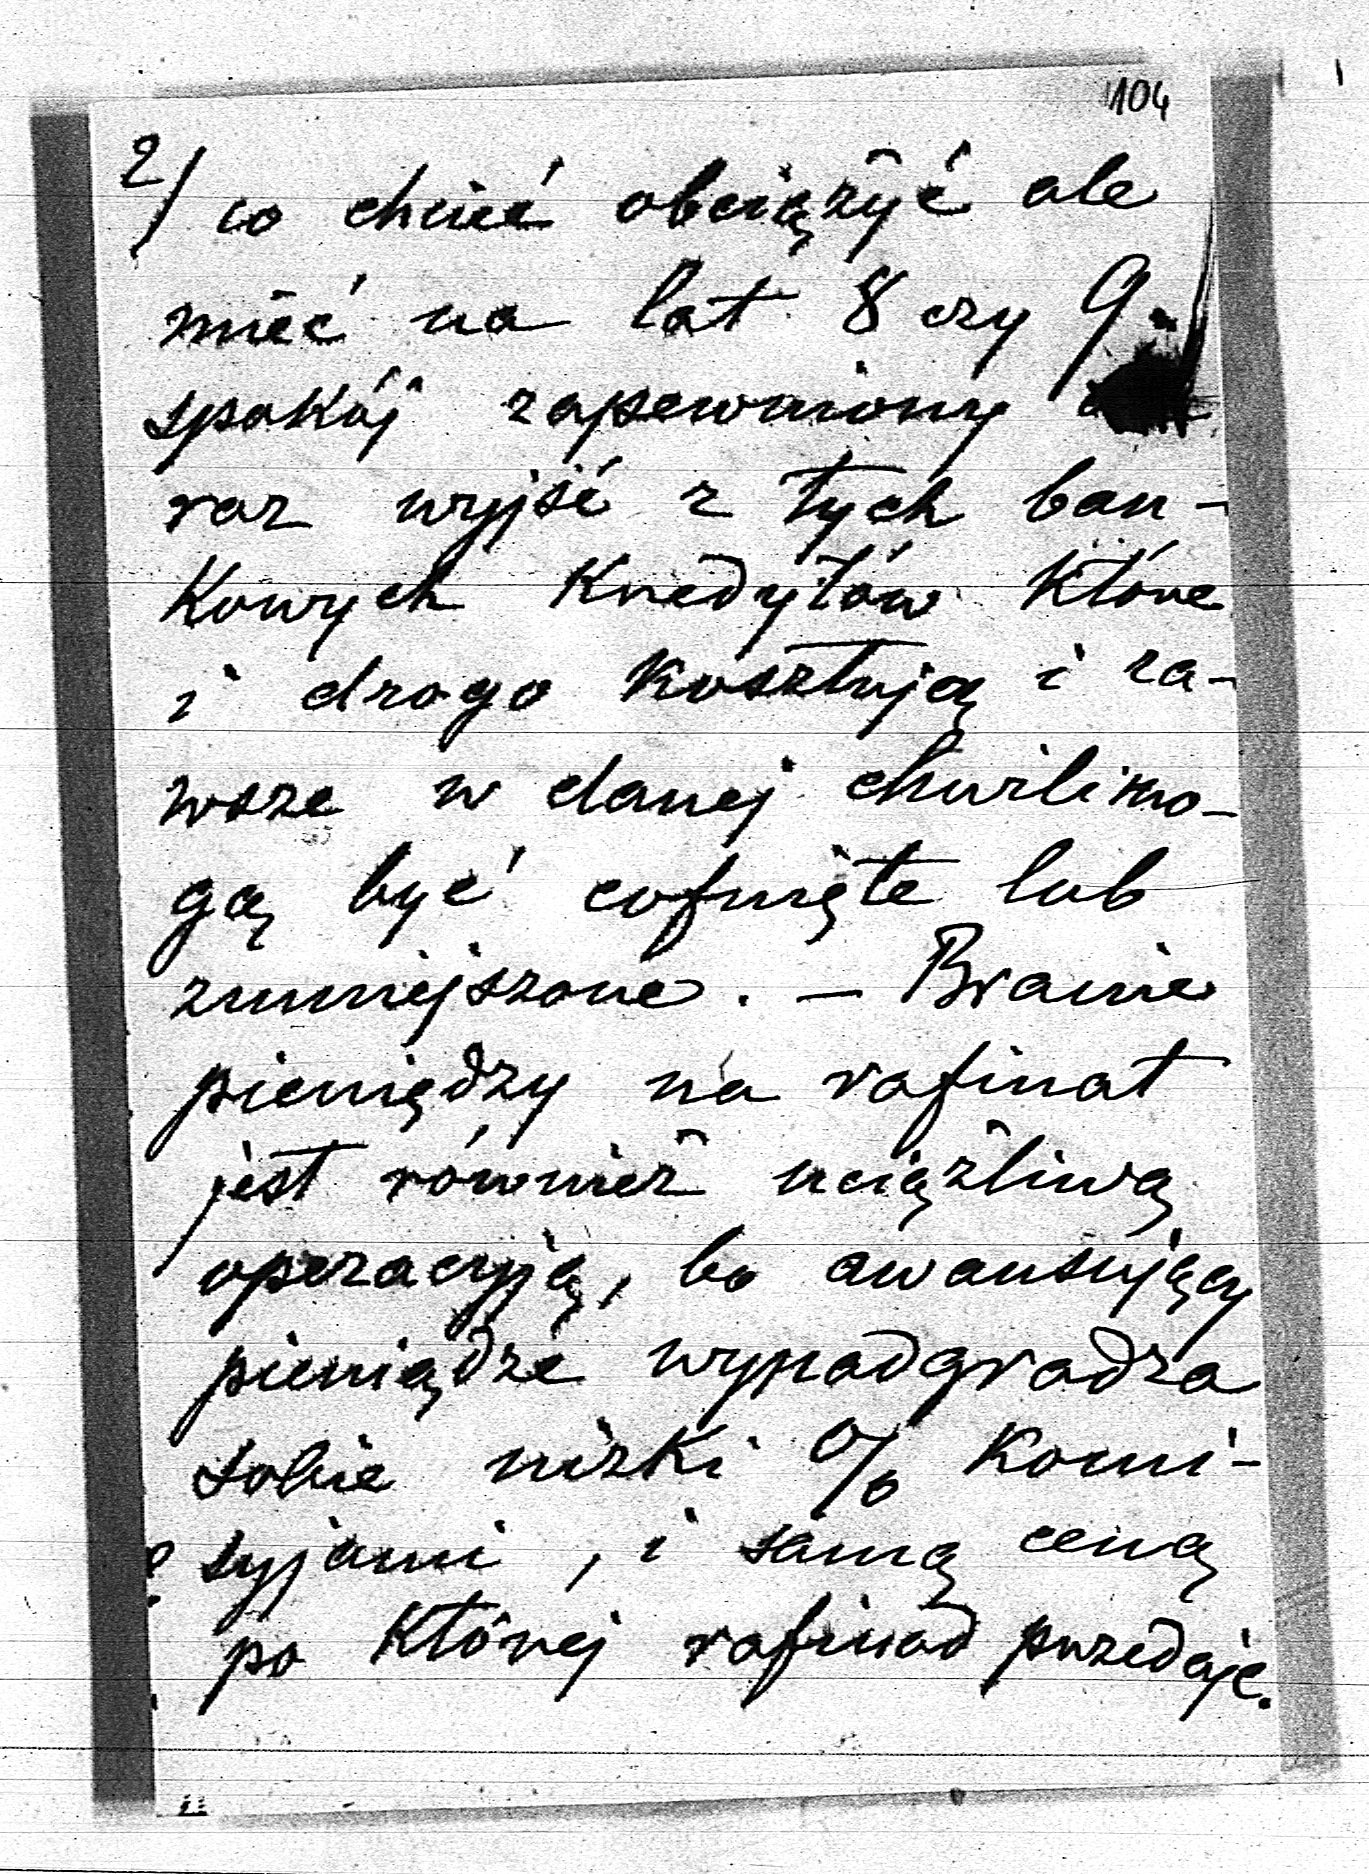 104
2/ co chcieć obciążyć ale
mieć na lat 8 czy 9
spokój zapewniony
raz wyjść z tych ban-
kowych kredytów które
i drogo kosztują i za-
wsze w danej chwili mo-
gą być cofnięte lub
zmniejszone. – Branie
pieniędzy na rafinat
jest również uciążliwą
operacyją, bo awansujący
pieniądze wynadgradza
sobie nizki % komi-
syjami, i samą ceną
po której rafinad przedaje.